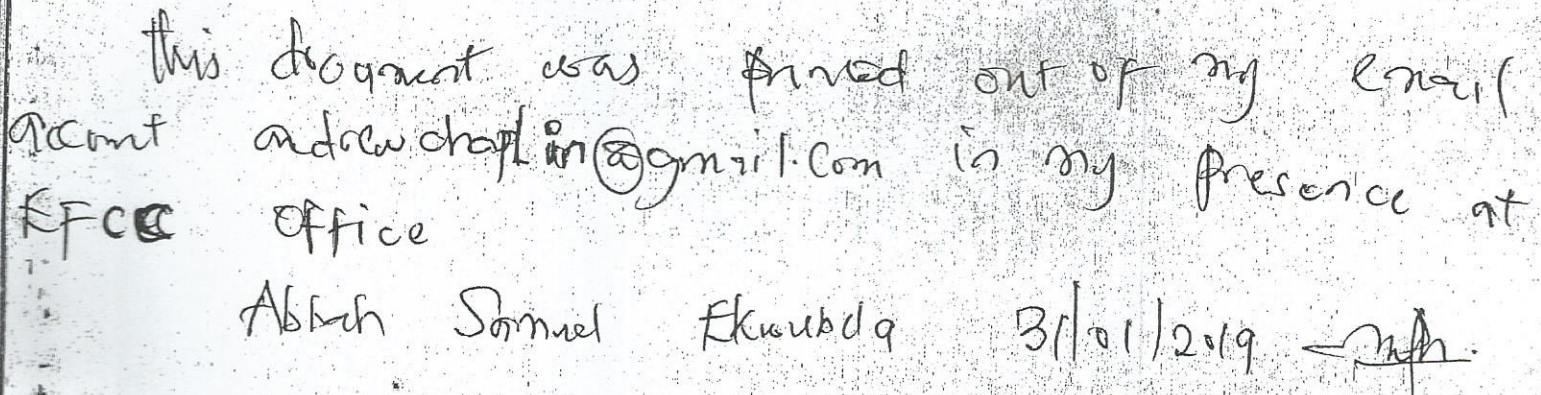 this document was printed out of my email
account andrewchaplin@gmail.com in my presence at
EFCC office
Abbah Samuel 31/01/2019